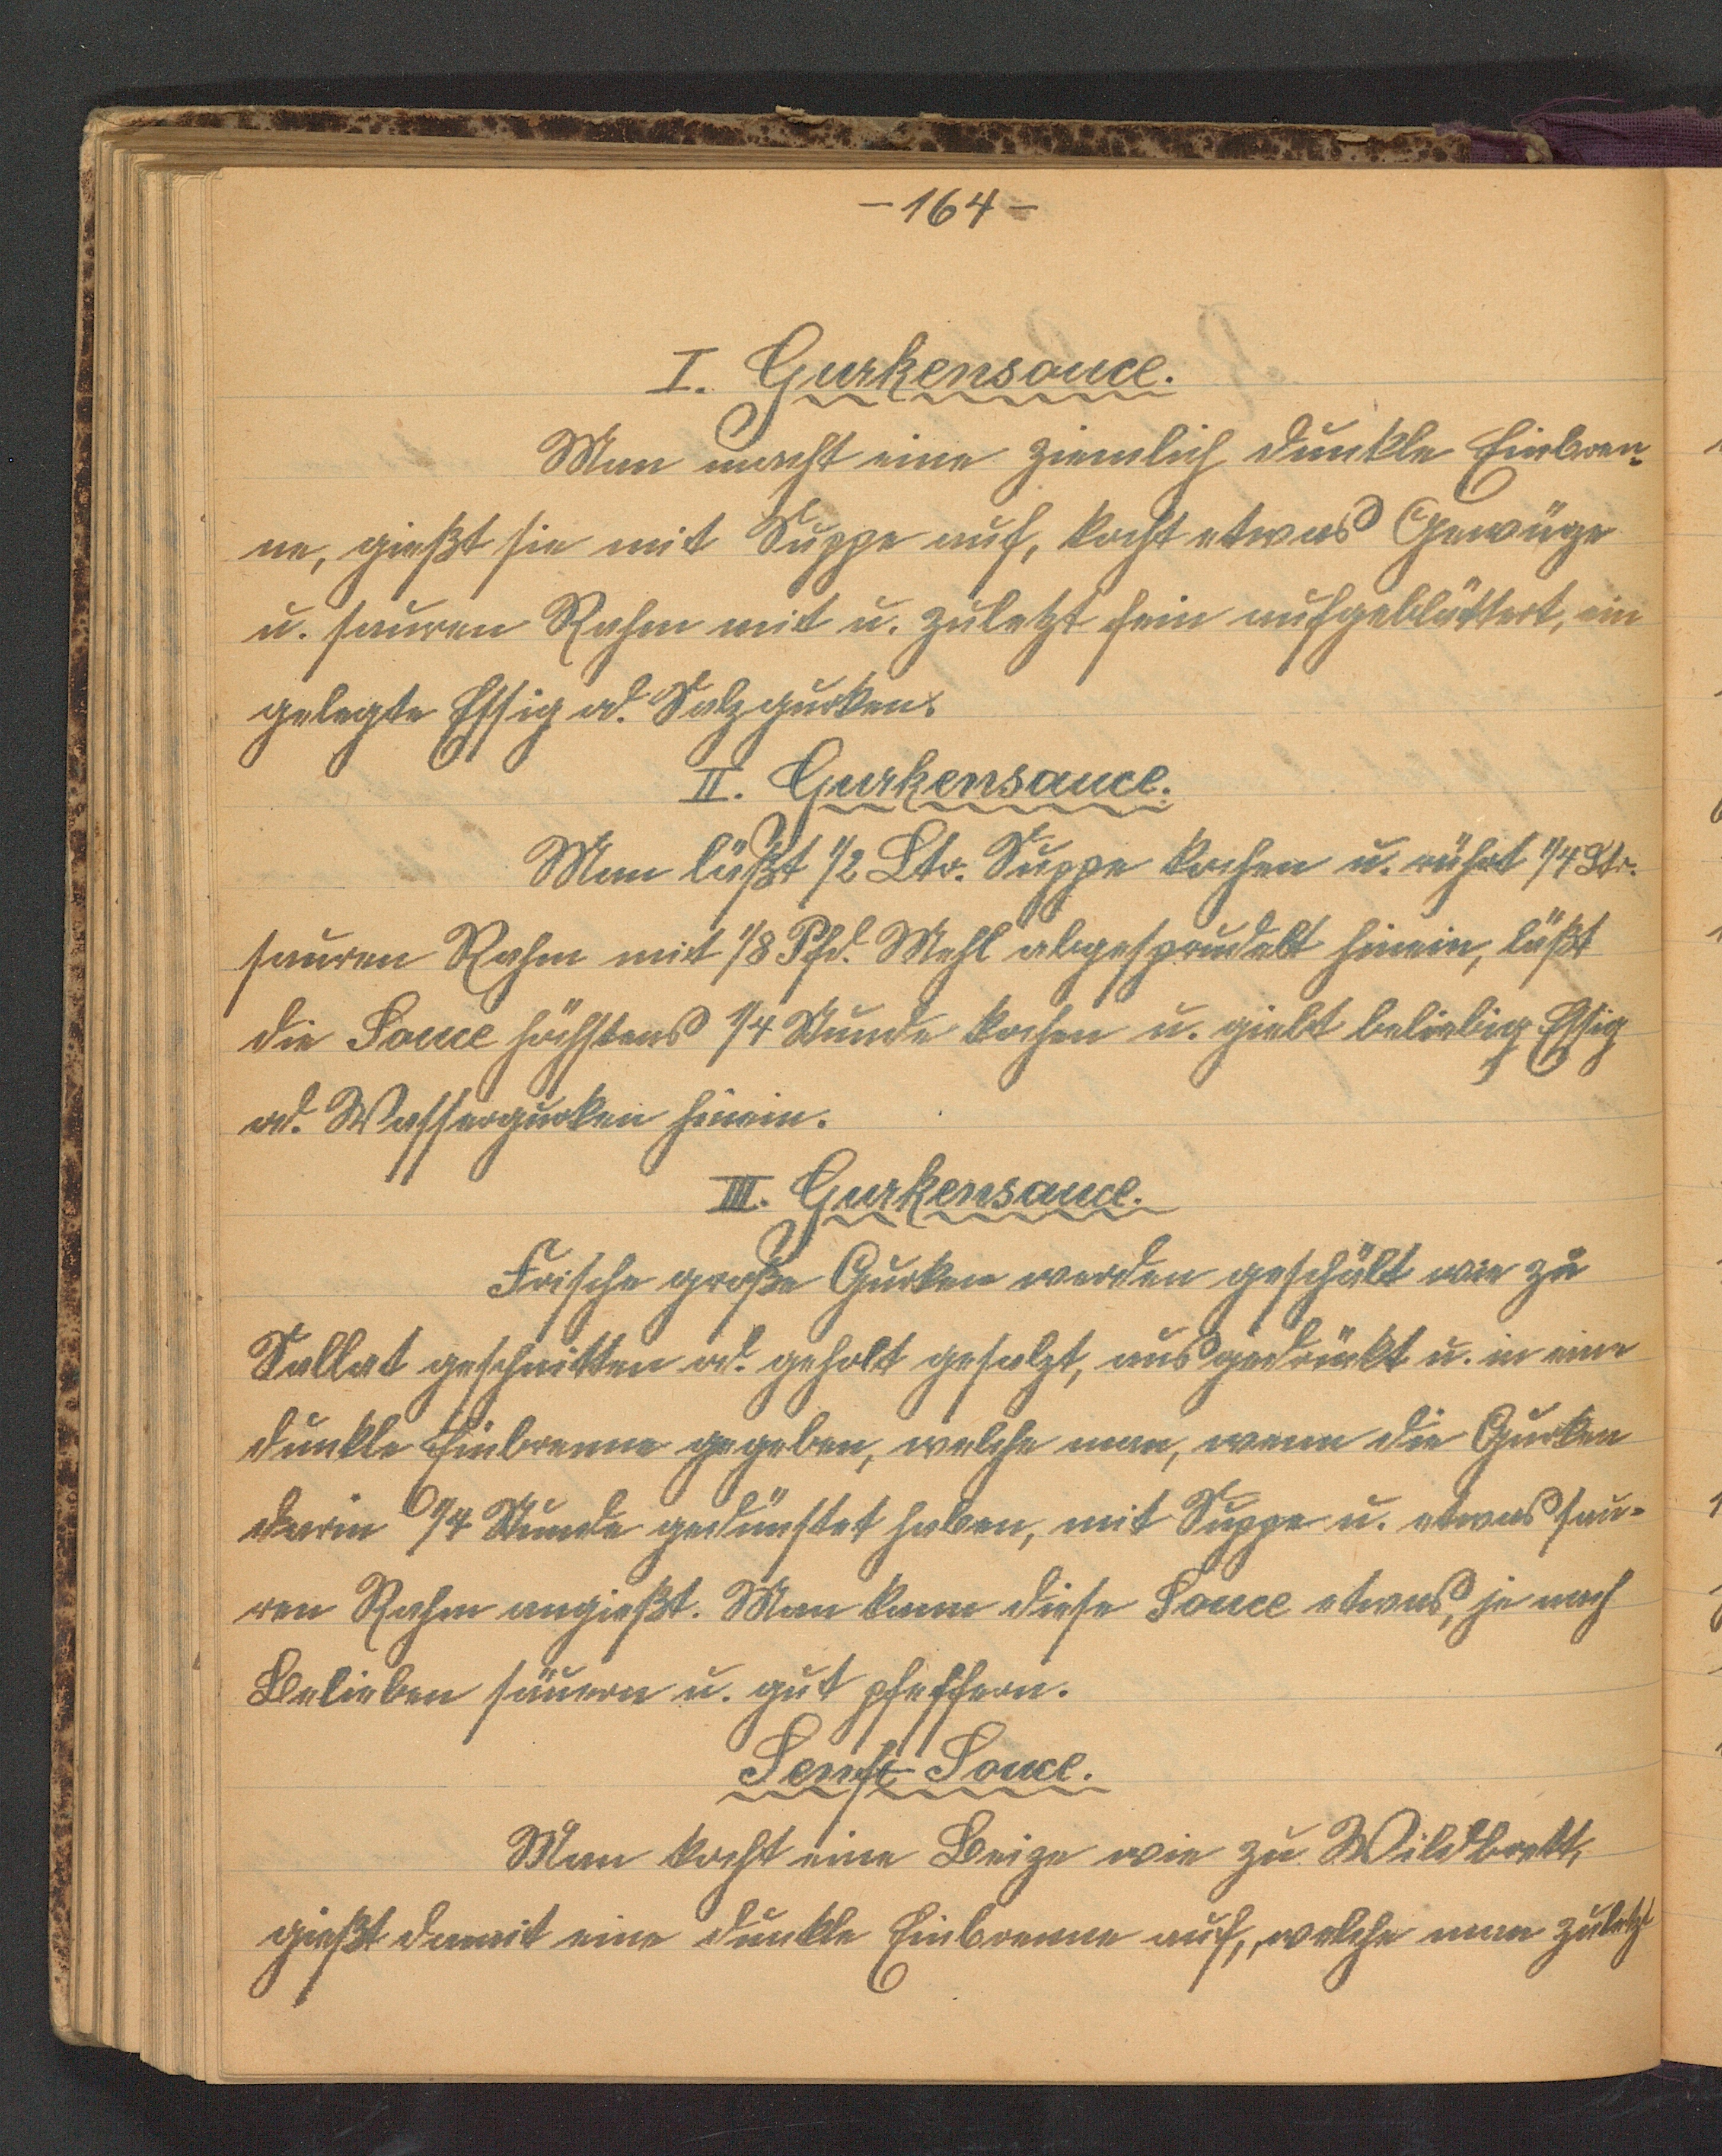 - 164 -
I. Gurkensouce.
Man macht eine ziemlich dunkle Einbren-
ne, gießt sie mit Suppe auf, kocht etwas Gewürze
u. sauren Rahm mit u. zuletzt fein aufgeblättert, ein
gelegte Essig od. Salzgurken.
II. Gurkensauce.
Man läßt 1/2 Ltr. Suppe kochen u. rührt 1/4 Ltr.
sauren Rahm mit 1/8 Pfd. Mehl abgesprudelt hinein, läßt
die Souce höchstens 1/4 Stunde kochen u. giebt beliebig Essig
od. Wassergurken hinein.
III. Gurkensauce.
Frische große Gurken werden geschält wie zu
Sallat geschnitten od. geholt gesalzt, ausgedrückt u. in eine
dunkle Einbrenne gegeben, welche man, wenn die Gurken
darin 1/4 Stunde gedünstet haben, mit Suppe u. etwas sau-
ren Rahm angießt. Man kann diese Souce etwas, je nach
Belieben säuern u. gut pfeffern.
Senft-Souce.
Man kocht eine Beize wie zu Wildbrett,
gießt damit eine dunkle Einbrenne auf, welche man zuletzt